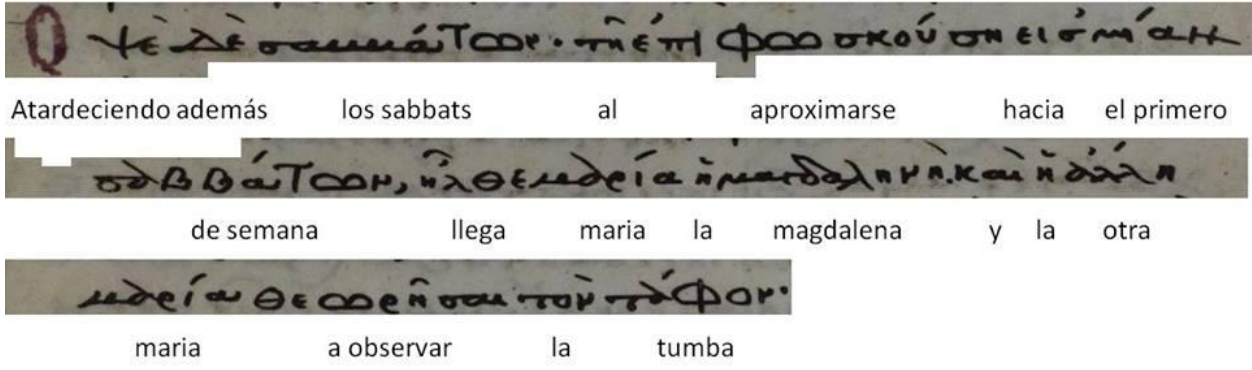 Ὀψὲ δὲ σαββάτων· τῆ ἐπιφωσκούση εἰς μίαν
Atardeciendo además los sabbats al aproximarse hacia el primero
σαββάτων, ἦλθε μαρία ἡ μαγδαληνὴ. καὶ ἡ ἄλλη
de semana llega maria la magdalena y la otra
μαρία θεωρῆσαι τὸν τάφον·
maria a observar la tumba